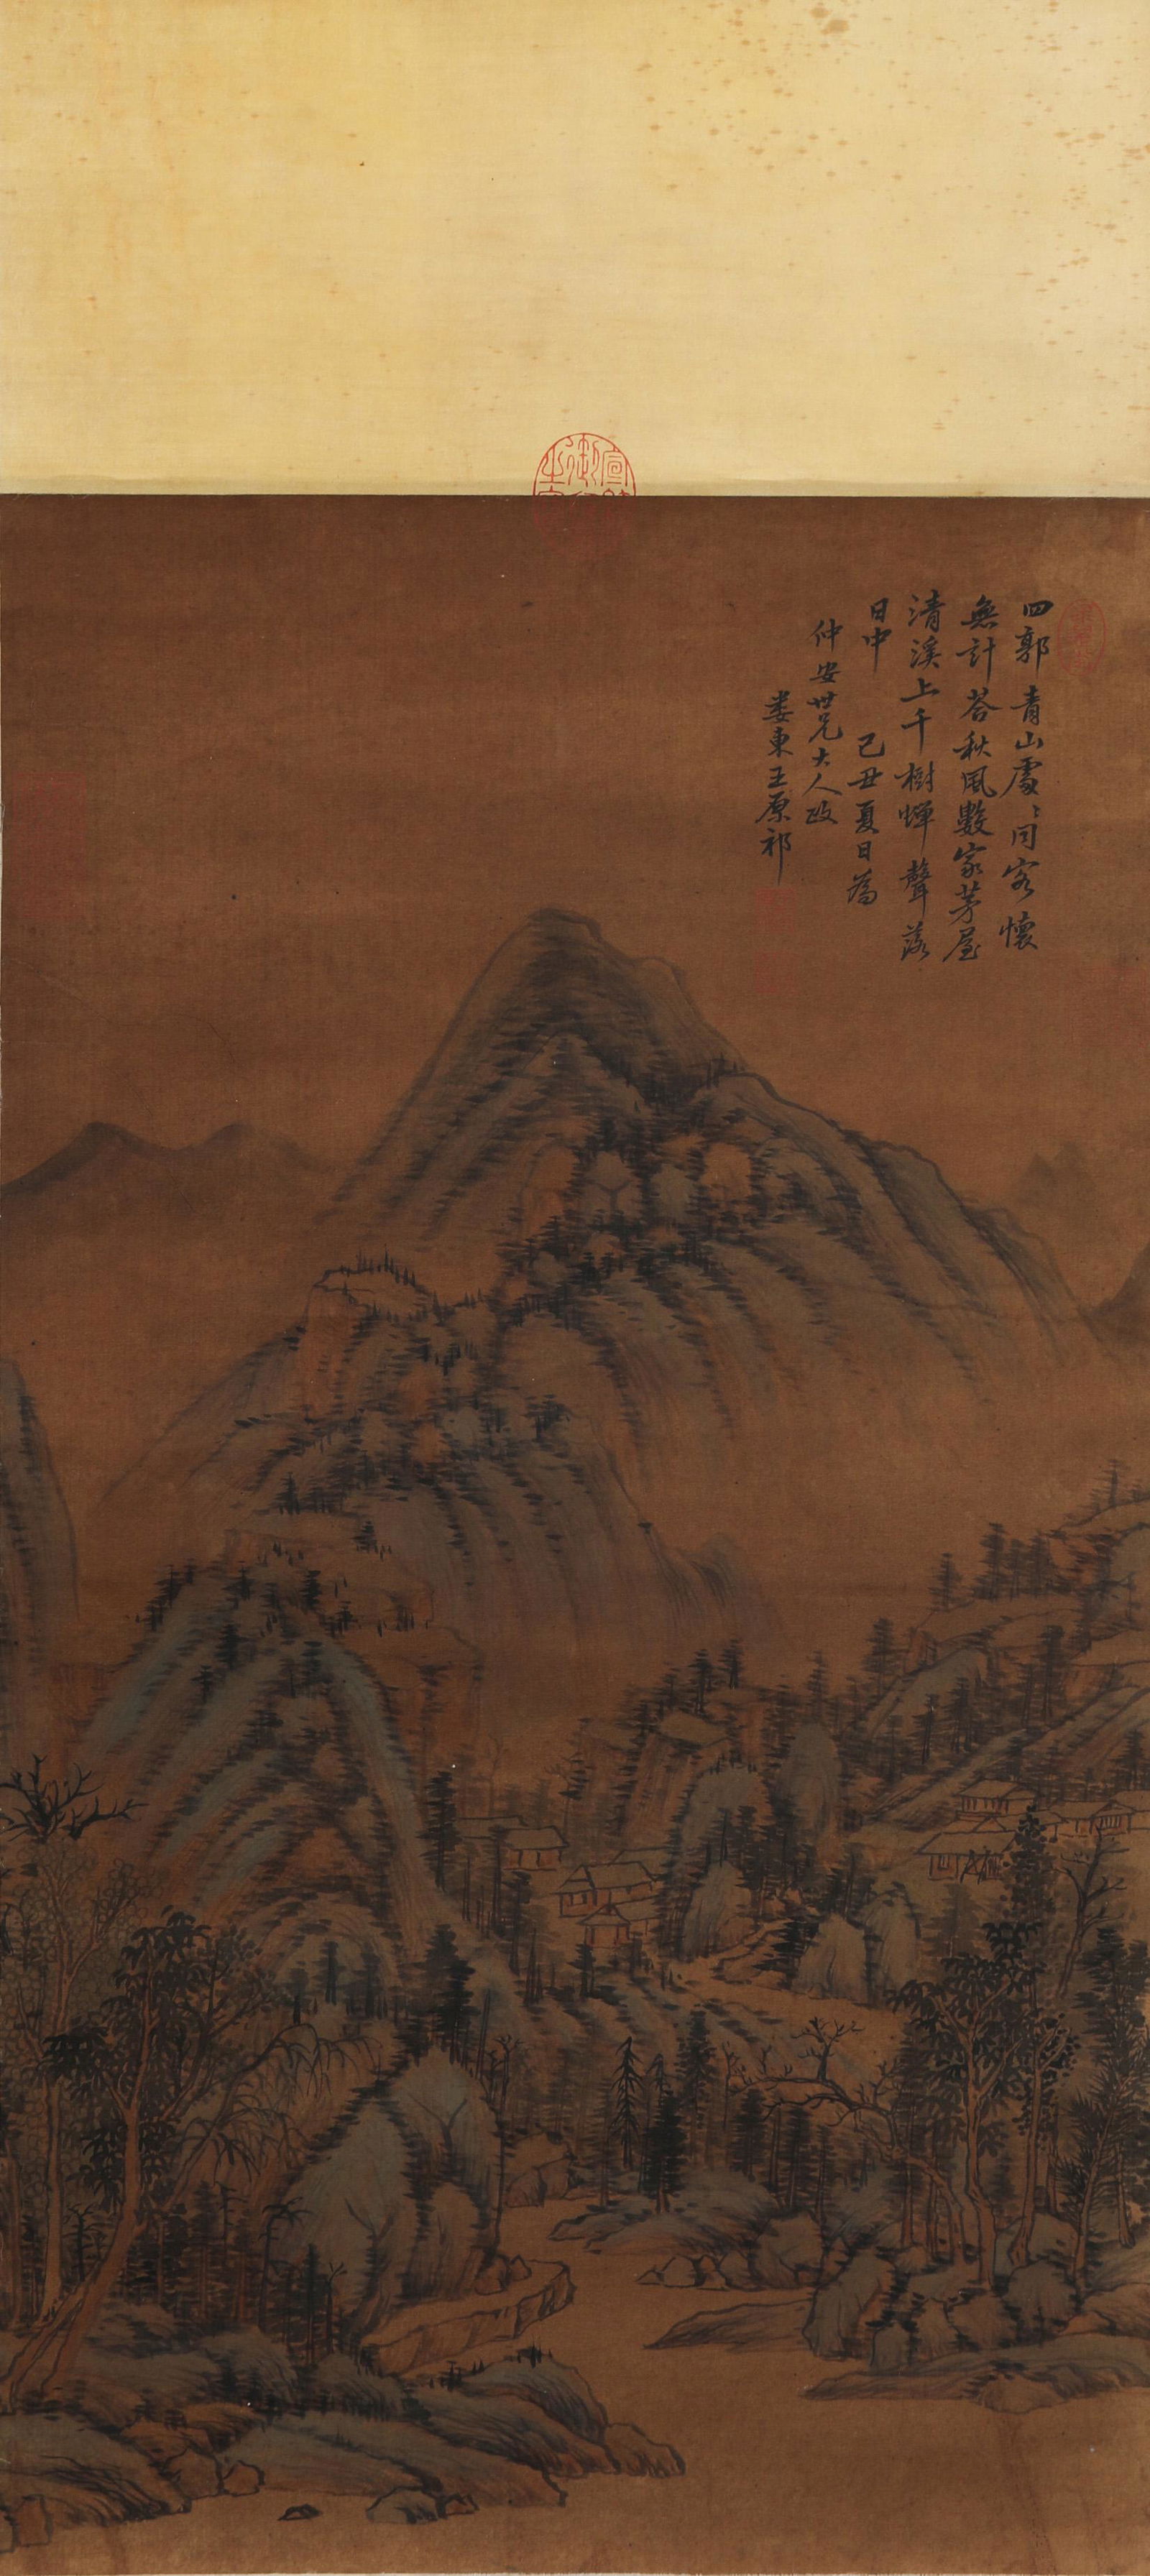 四郭青山處〻同客懷
無計答秋風數家茅屋
清溪上千樹蟬聲落
日中　己丑夏日為
仲安世兄大人政
婁東王原祁
宣統御覽之寶